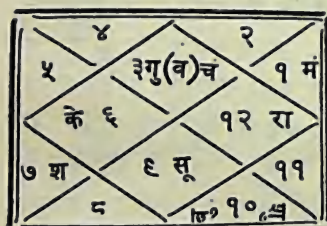 ४ २
५ ३गु(व)चं १ मं
के ६ १२ रा
७ श ९ सू ११
८ १०